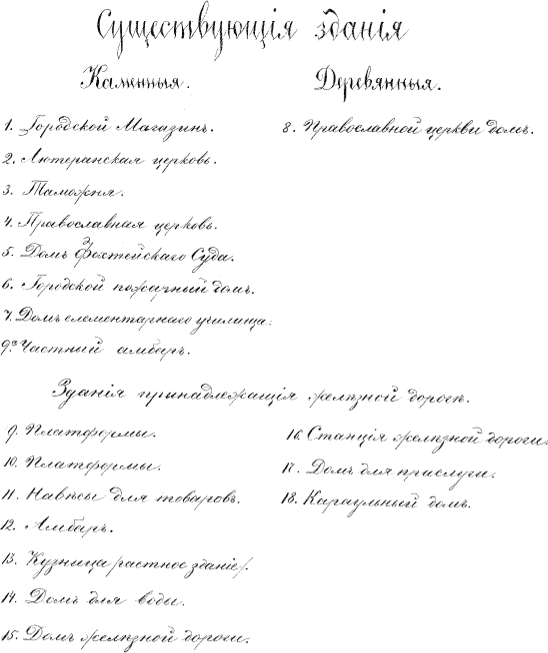 Существующія зданія
Каменныя.
1. Городской Магазинъ.
2. Лютеранская церковь.
3. Таможня.
4. Православная церковь.
5. Домъ Фохтейскаго Суда.
6. Городской пожарный домъ.
7. Домъ елементарнаго училища.
9ª Частный амбаръ.
Деревянныя.
8. Православной церкви домъ.
Зданія принадлежащія желѣзной дорогѣ.
9. Платформы.
10. Платформы.
11. Навѣсы для товаровъ.
12. Амбаръ.
13. Кузница /частное зданіе/.
14. Домъ для воды.
15. Домъ желѣзной дороги.
16. Станція желѣзной дороги.
17. Домъ для прислуги.
18. Караульный домъ.